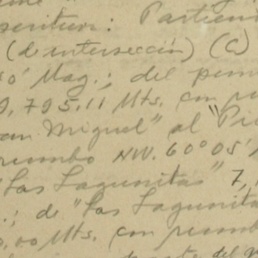 escritura: Partiendo
(d intersección) (C)
50' Mag.; del punto
9,795.11 Mts. con
San Miguel" al "Pi
rumbo NW. 60° 05'
"Las Lagunitas" 7,
.; de "Las Lagunitas
0,00 Mts. con rumbo